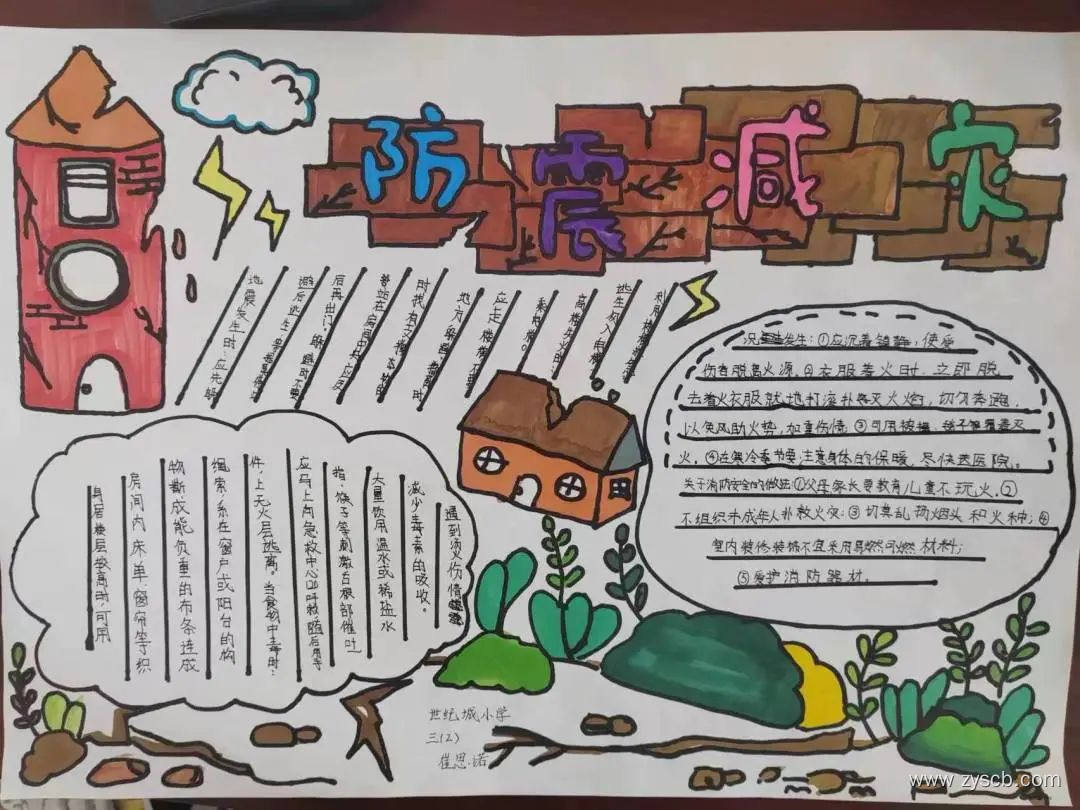 防震减灾
地震发生时，应先躲
避后逃生，等
后再出门。躲避时不要
靠站在房间中央应及
时找有支撑
地方躲避。
应走楼梯不要
乘电梯。
高楼失火时
逃生
况发生：①应沉着镇静，使
伤者脱离火源。②衣服着火时，立即脱
去着火衣服就地打滚扑灭火焰，切勿奔跑，
以免风助火势，加重伤情。③可用被褥、毯子等覆盖灭
火。④在寒冷季节要注意身体的保暖，尽快送医院。
关于消防安全的做法①父母家长要教育儿童不玩火。②
不组织未成年人扑救火灾；③切莫乱扔烟头和火种；④
室内装修装饰不宜采用易燃可燃材料；
⑤爱护消防器材。
身居楼层较高时，可用
房间内床单、窗帘等织
物撕成能负重的布条连成
绳索系在窗户或阳台的构
件上无火层逃离。当食物中毒时：
应马上向急救中心呼救随后用手
指、筷子等刺激舌根部催吐
大量饮用温水或稀盐水
减少毒素的吸收。
遇到烫火伤情
世纪城小学
三(2)
崔思诺
www.zyscb.com